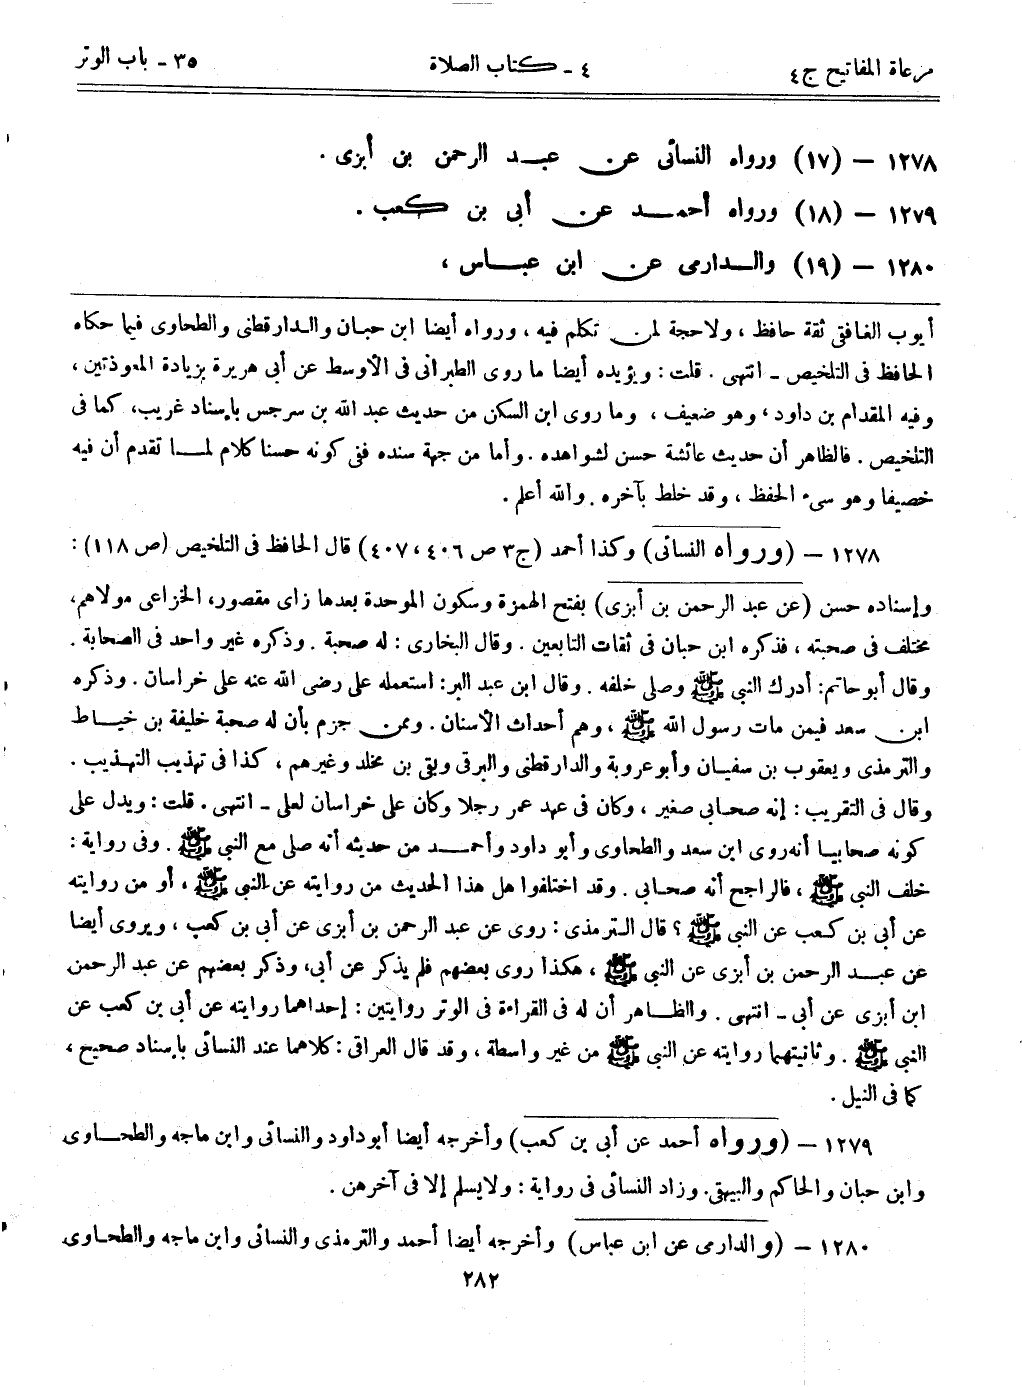 مرعاة المفاتيح ج٤
٤ - كتاب الصلاة
٣٥ - باب الوتر
١٢٧٨ - (١٧) ورواه النسائى عن عبد الرحمن بن أبزى .
١٢٧٩ - (١٨) ورواه أحمد عن أبى بن كعب .
١٢٨٠ - (١٩) والدارمى عن ابن عباس ،
أيوب الغافقى ثقة حافظ ، ولاحجة لمن تكلم فيه ، ورواه أيضا ابن حبان والدارقطنى والطحاوى فيما حكاه
الحافظ فى التلخيص - انتهى . قلت : ويؤيده أيضا ما روى الطبرانى فى الأوسط عن أبى هريرة بزيادة المعوذتين ،
وفيه المقدام بن داود ، وهو ضعيف ، وما روى ابن السكن من حديث عبد الله بن سرجس بإسناد غريب، كما فى
التلخيص . فالظاهر أن حديث عائشة حسن لشواهده . وأما من جهة سنده ففى كونه حسنا كلام لما تقدم أن فيه
خصيفا وهو سىء الحفظ ، وقد خلط بآخره . والله أعلم .
١٢٧٨ - (ورواه النسائى) وكذا أحمد (ج٣ ص ٤٠٦ ، ٤٠٧) قال الحافظ فى التلخيص (ص ١١٨) :
وإسناده حسن (عن عبد الرحمن بن أبزى) بفتح الهمزة وسكون الموحدة بعدها زاى مقصور، الخزاعى مولاهم،
مختلف فى صحبته ، فذكره ابن حبان فى ثقات التابعين . وقال البخارى : له صحبة . وذكره غير واحد فى الصحابة .
وقال أبوحاتم: أدرك النبى ﷺ وصلى خلفه . وقال ابن عبد البر: استعمله على رضى الله عنه على خراسان . وذكره
ابن سعد فيمن مات رسول الله ﷺ ، وهم أحداث الأسنان . وممن جزم بأن له صحبة خليفة بن خياط
والترمذى ويعقوب بن سفيان وأبوعروبة والدارقطنى والبرقى وبقى بن مخلد وغيرهم ، كذا فى تهذيب التهذيب .
وقال فى التقريب : إنه صحابى صغير ، وكان فى عهد عمر رجلا وكان على خراسان لعلى - انتهى . قلت : ويدل على
كونه صحابيا أنه روى ابن سعد والطحاوى وأبو داود وأحمد من حديثه أنه صلى مع النبى ﷺ . وفى رواية :
خلف النبى ﷺ ، فالراجح أنه صحابى . وقد اختلفوا هل هذا الحديث من روايته عن النبى ﷺ ، أو من روايته
عن أبى بن كعب عن النبى ﷺ ؟ قال الترمذى : روى عن عبد الرحمن بن أبزى عن أبى بن كعب ، ويروى أيضا
عن عبد الرحمن بن أبزى عن النبى ﷺ ، هكذا روى بعضهم فلم يذكر عن أبى، وذكر بعضهم عن عبد الرحمن
ابن أبزى عن أبى - انتهى . والظاهر أن له فى القراءة فى الوتر روايتين : إحداهما روايته عن أبى بن كعب عن
النبى ﷺ . وثانيتهما روايته عن النبى ﷺ من غير واسطة ، وقد قال العراقى : كلاهما عند النسائى بإسناد صحيح ،
كما فى النيل .
١٢٧٩ - (ورواه أحمد عن أبى بن كعب) وأخرجه أيضا أبوداود والنسائى وابن ماجه والطحاوى
وابن حبان والحاكم والبيهقى. وزاد النسائى فى رواية : ولايسلم إلا فى آخرهن .
١٢٨٠ - (والدارمى عن ابن عباس) وأخرجه أيضا أحمد والترمذى والنسائى وابن ماجه والطحاوى
٢٨٢